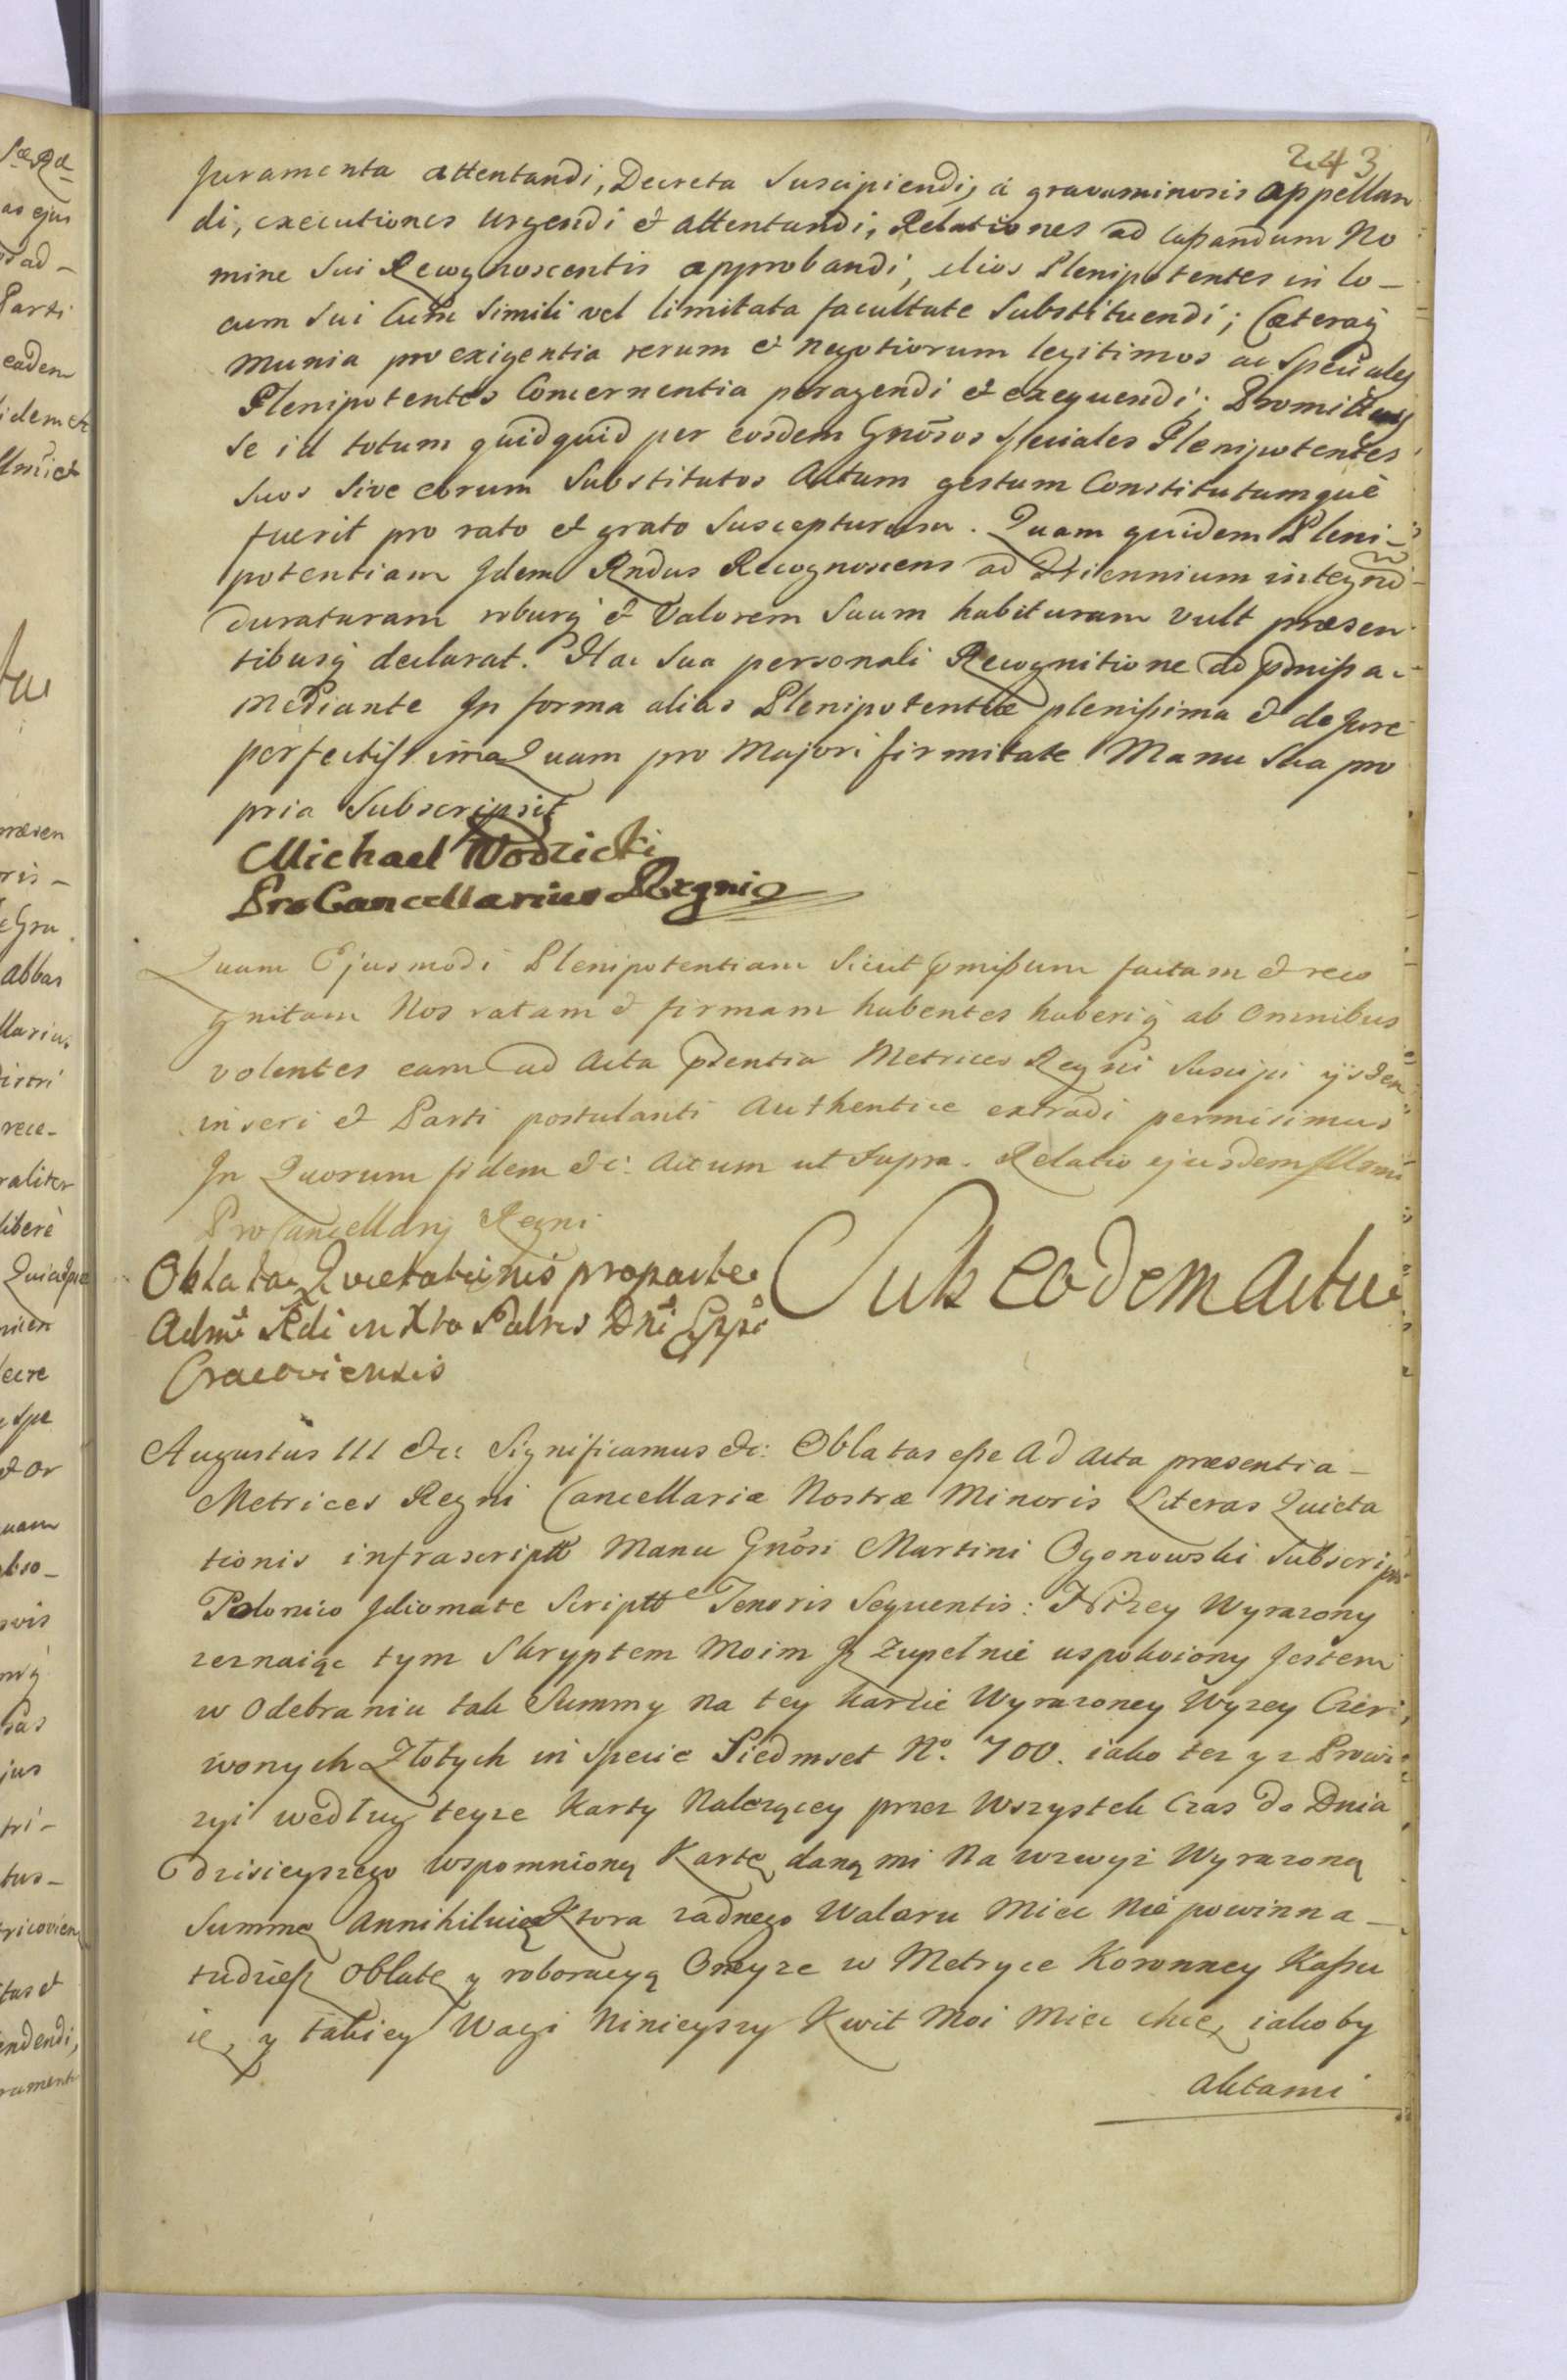 243
Juramenta attentandi, Decreta Suscipiendi, á gravaminosis appellan
di, executiones urgendi et attentandi, Relationes ad cassandum No
mine Sui Recognoscentis approbandi, alios Plenipotentes in lo-
cum Sui Cum Simili vel limitata facultate Substituendi; Cæteraq̃
munia pro exigentia rerum et negotiorum legitimos ac Speciales
Plenipotentes Concernentia peragendi et exequendi; Promittens
Se id totum quidquid per eosdem Gnõsos Speciales Plenipotentes
Suos Sive eorum Substitutos Actum gestum Constitutumquè
fuerit pro rato et grato Suscepturum. Quam quidem Pleni-
potentiam Idem Rndus Recognoscens ad Triennium integrũ
duraturam roburq̃ et Valorem Suum habituram vult præsen
tibusq̃ declarat. Hac Sua personali Recognitione ad præmissa-
mediante In forma alias Plenipotentiæ plenissima et de Jure
perfectissima Quam pro Majori firmitate Manu Sua pro
pria Subscripsit
Michael Wodzicki
ProCancellarius Regni
Quam Ejusmodi Plenipotentiam Sicut præmissum factam et reco
gnitam Nos ratam et firmam habentes haberiq̃ ab Omnibus
volentes eam ad Acta pñtia Metrices Regni Suscipi ijsdem
inseri et Parti postulanti Authentice extradi permisimus
In Quorum fidem &c: Actum ut Supra. Relatio ejusdem Illmi
ProCancellarij Regni
Oblata Quietationis pro parte
Admũ Rdi in Xto Patris Dni Eppi
Cracoviensis
Sub eodem actu
Augustus III &c: Significamus &c: Oblatas esse Ad Acta præsentia-
Metrices Regni Cancellariæ Nostræ Minoris Literas Quieta
tionis infrascriptt Manu Gnõsi Martini Ogonowski Subscrip
Polonico Idiomate Scriptt Tenoris Sequentis: Niżey Wyrazony
zeznaiąc tym Skryptem Moim Iz Zupełnie uspokoiony Jestem
w Odebraniu tak Summy na tey karcie Wyrazoney Wyzey Czer
wonych Złotych in Specie Siedmset No. 700. iako tez y z Prowi
zyi według teyze Karty Nalezącey przez Wszystek Czas do Dnia
dzisieyszego wspomnioną Kartę daną mi na wzwyż Wyrazoną
Summę Annihiluię Ktora zadnego Waloru Miec Nie powinna-
tudziesz Oblatę y roboracyą Oneyze w Metryce Koronney Kassu
ię, y takiey Wagi Ninieyszy Kwit Moi Miec chcę, iakoby
aktami